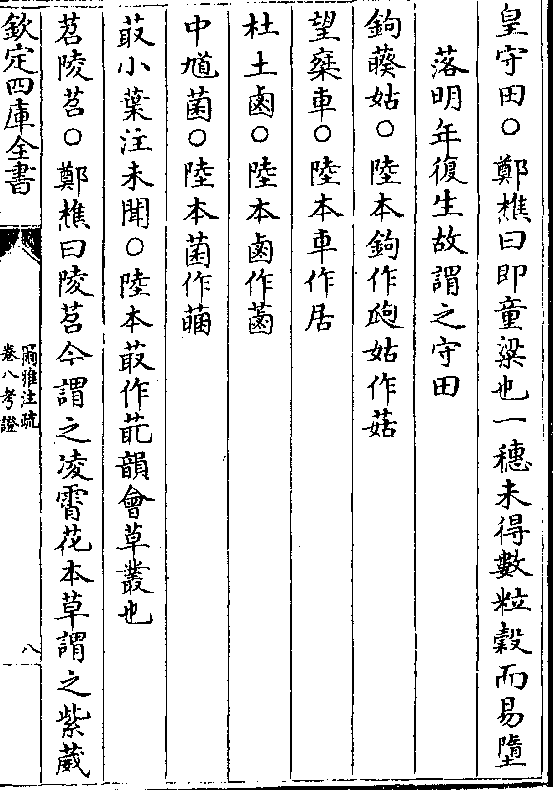 皇守田○鄭樵曰即童粱也一穗未得數粒穀而易墮
落明年復生故謂之守田
鉤藈姑○陸本鉤作瓟姑作菇
望椉車○陸本車作居
杜土鹵○陸本鹵作蓾
中馗菌○陸本菌作䓴
菆小葉注未聞○陸本菆作蓜韻會草叢也
苕陵苕○鄭樵曰陵苕今謂之凌霄花本草謂之紫葳
欽定四庫全書
爾雅注疏
卷八考證
八